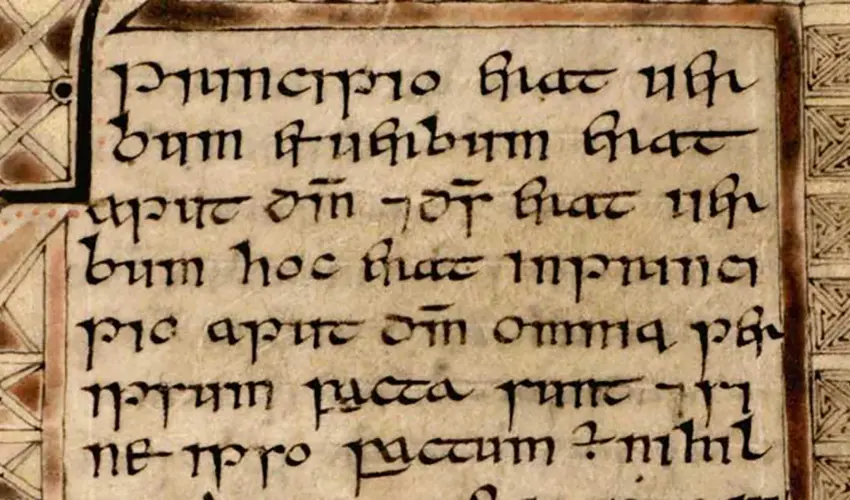 principio erat uer
bum et uerbum erat
aput dm̄ ⁊ ds̄ erat uer
bum hoc erat inprinci
pio aput dm̄ omnia per
ipsum facta sunt ⁊ si
ne ipso factum ÷ nihil